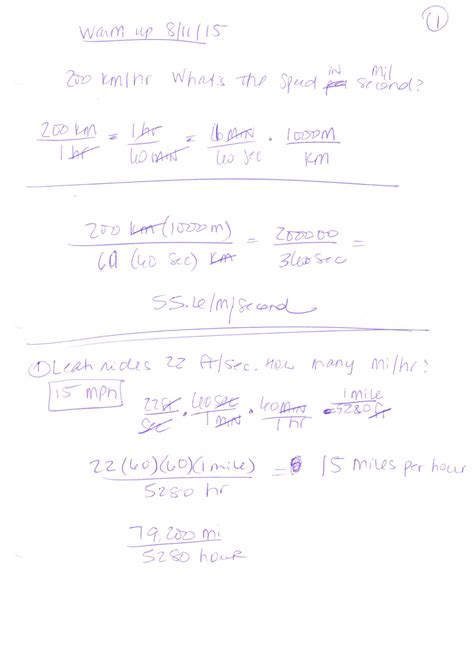 1
Warm up 8/11/15
200 km/hr What's the speed in mi/ second?
200 km / 1 hr = 1 hr / 60 min = 1 min / 60 sec · 1000m / km
200 km (1000m) / 60 (60 sec) km = 200000 / 3600 sec =
55.6/m/second
1 Leah rides 22 ft/sec. How many mi/hr?
15 mph
22 ft / sec · 60 sec / 1 min · 60 min / 1 hr = 1 mile / 5280 ft
22 (60)(60)(1 mile) / 5280 hr = 15 miles per hour
79,200 mi / 5280 hour